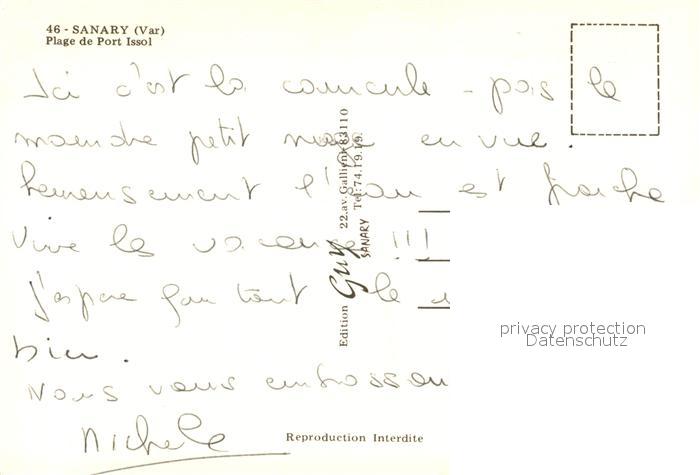 46 - SANARY (Var)
Plage de Port Issol
Ici c'est la canicule - pas le
moindre petit nuage en vue.
heureusement l'eau est fraiche
Vive les vacances !!!
J'espère que tout
bien.
Nous vous embrassons
Michele
Edition Guy 22.av.Gallieni 83110
SANARY Tel:74.19.19.
Reproduction Interdite
privacy protection
Datenschutz